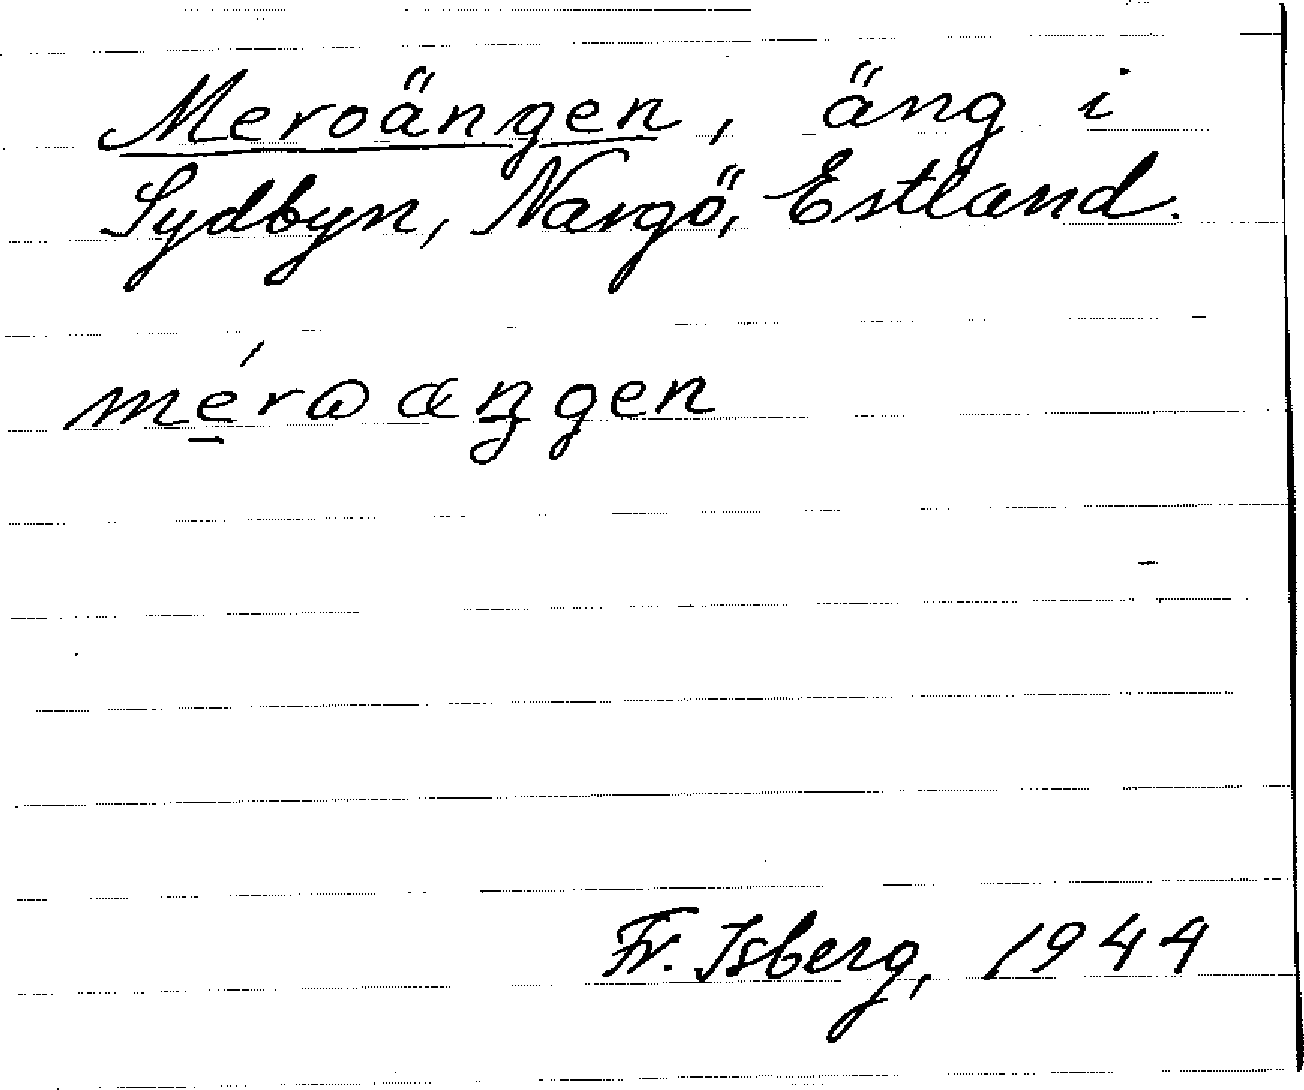 Meroängen, äng i
Sydbyn, Nargö, Estland.
mérωæŋgen
Fr. Isberg, 1944